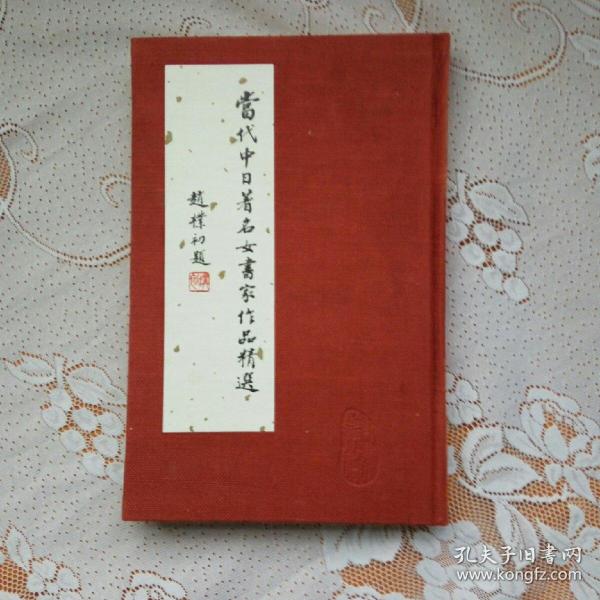 當代中日著名女書家作品精選
趙樸初題
孔夫子旧书网
www.kongfz.com